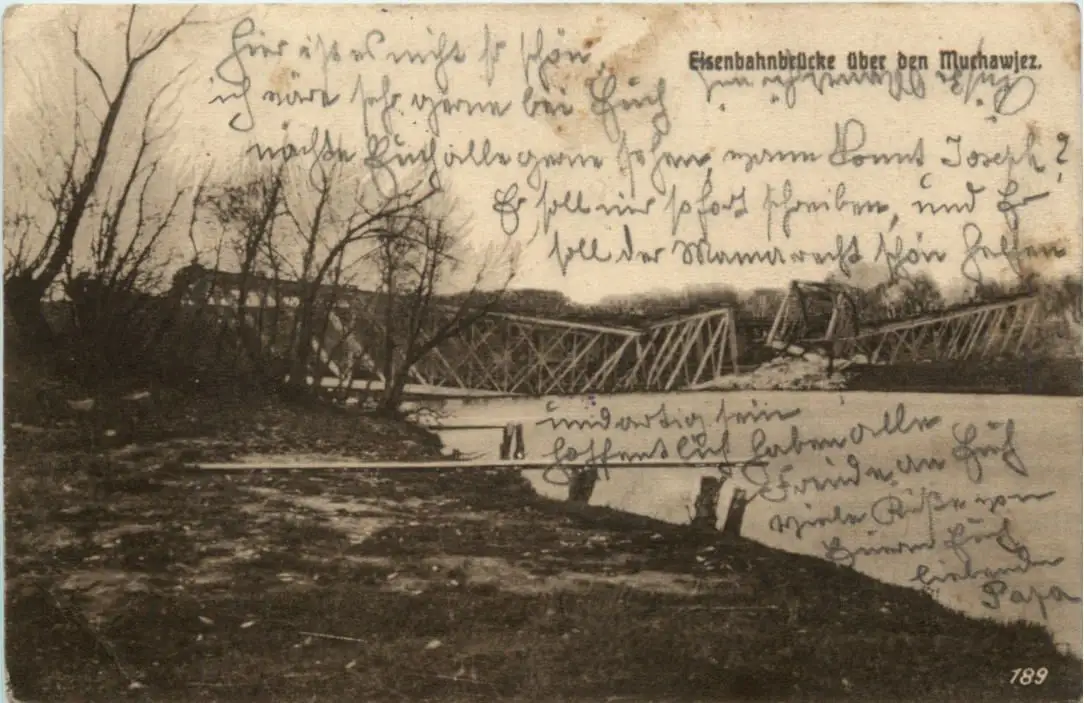 Eisenbahnbrücke über den Muchawjez.
Hier ist es nicht so schön,
ich wäre sehr gerne bei Euch
möchte Euch alle gerne sehen, wann kommt Joseph?
Er soll mir sofort schreiben, und Er
soll der Mama recht schön helfen
und artig sein
hoffentlich haben alle
Freude an Euch
viele Küße von
Eurem Euch
liebenden
Papa
189